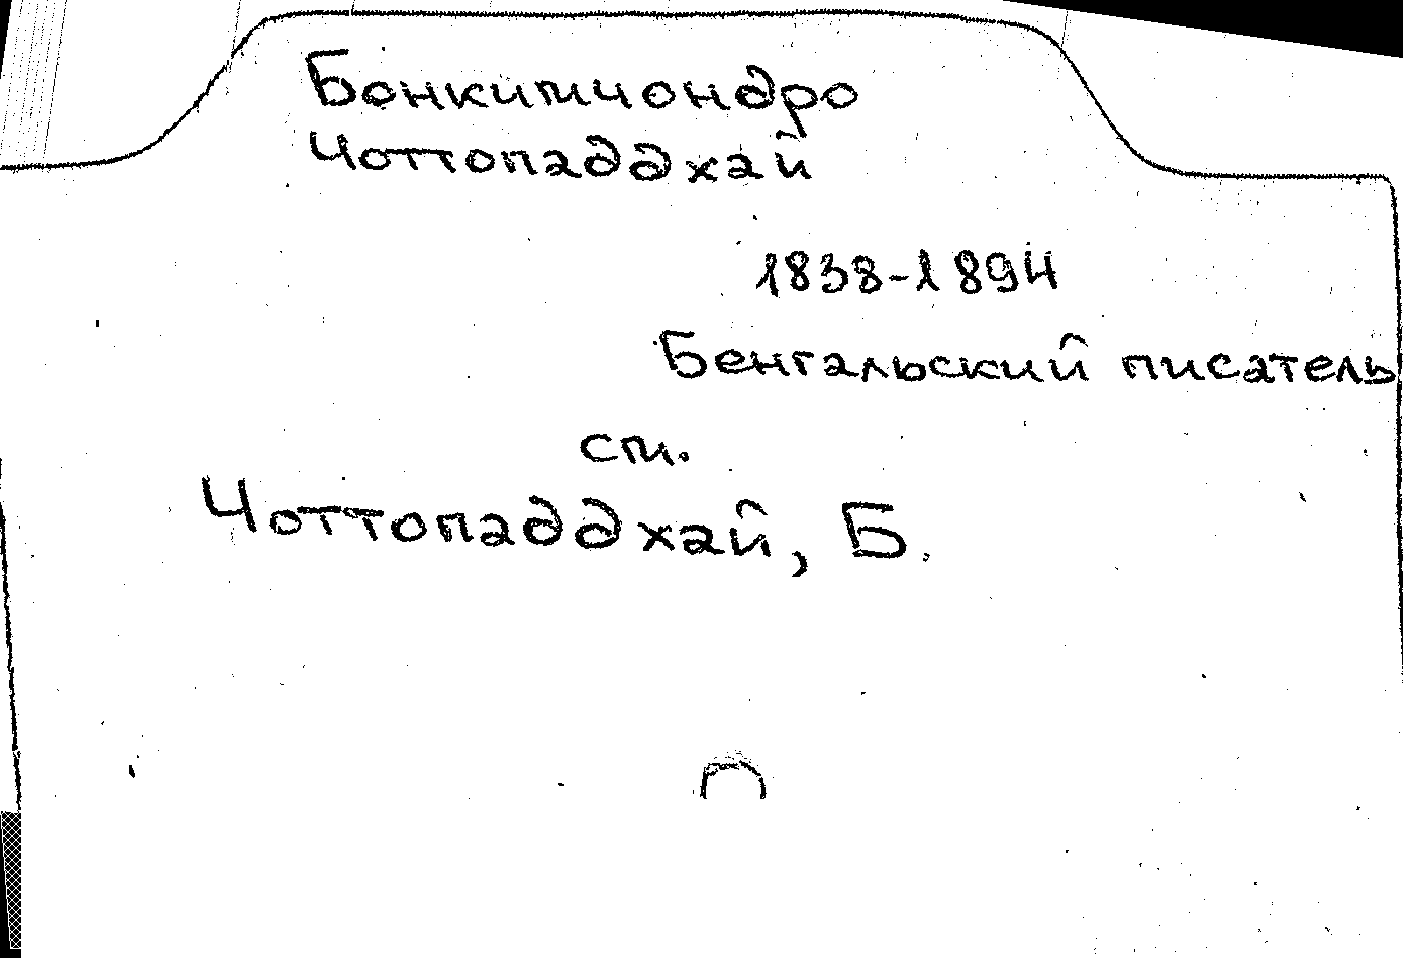 Бонкимчондро
Чоттопаддхай
1838-1894
Бенгальский писатель
см.
Чоттопаддхай, Б.